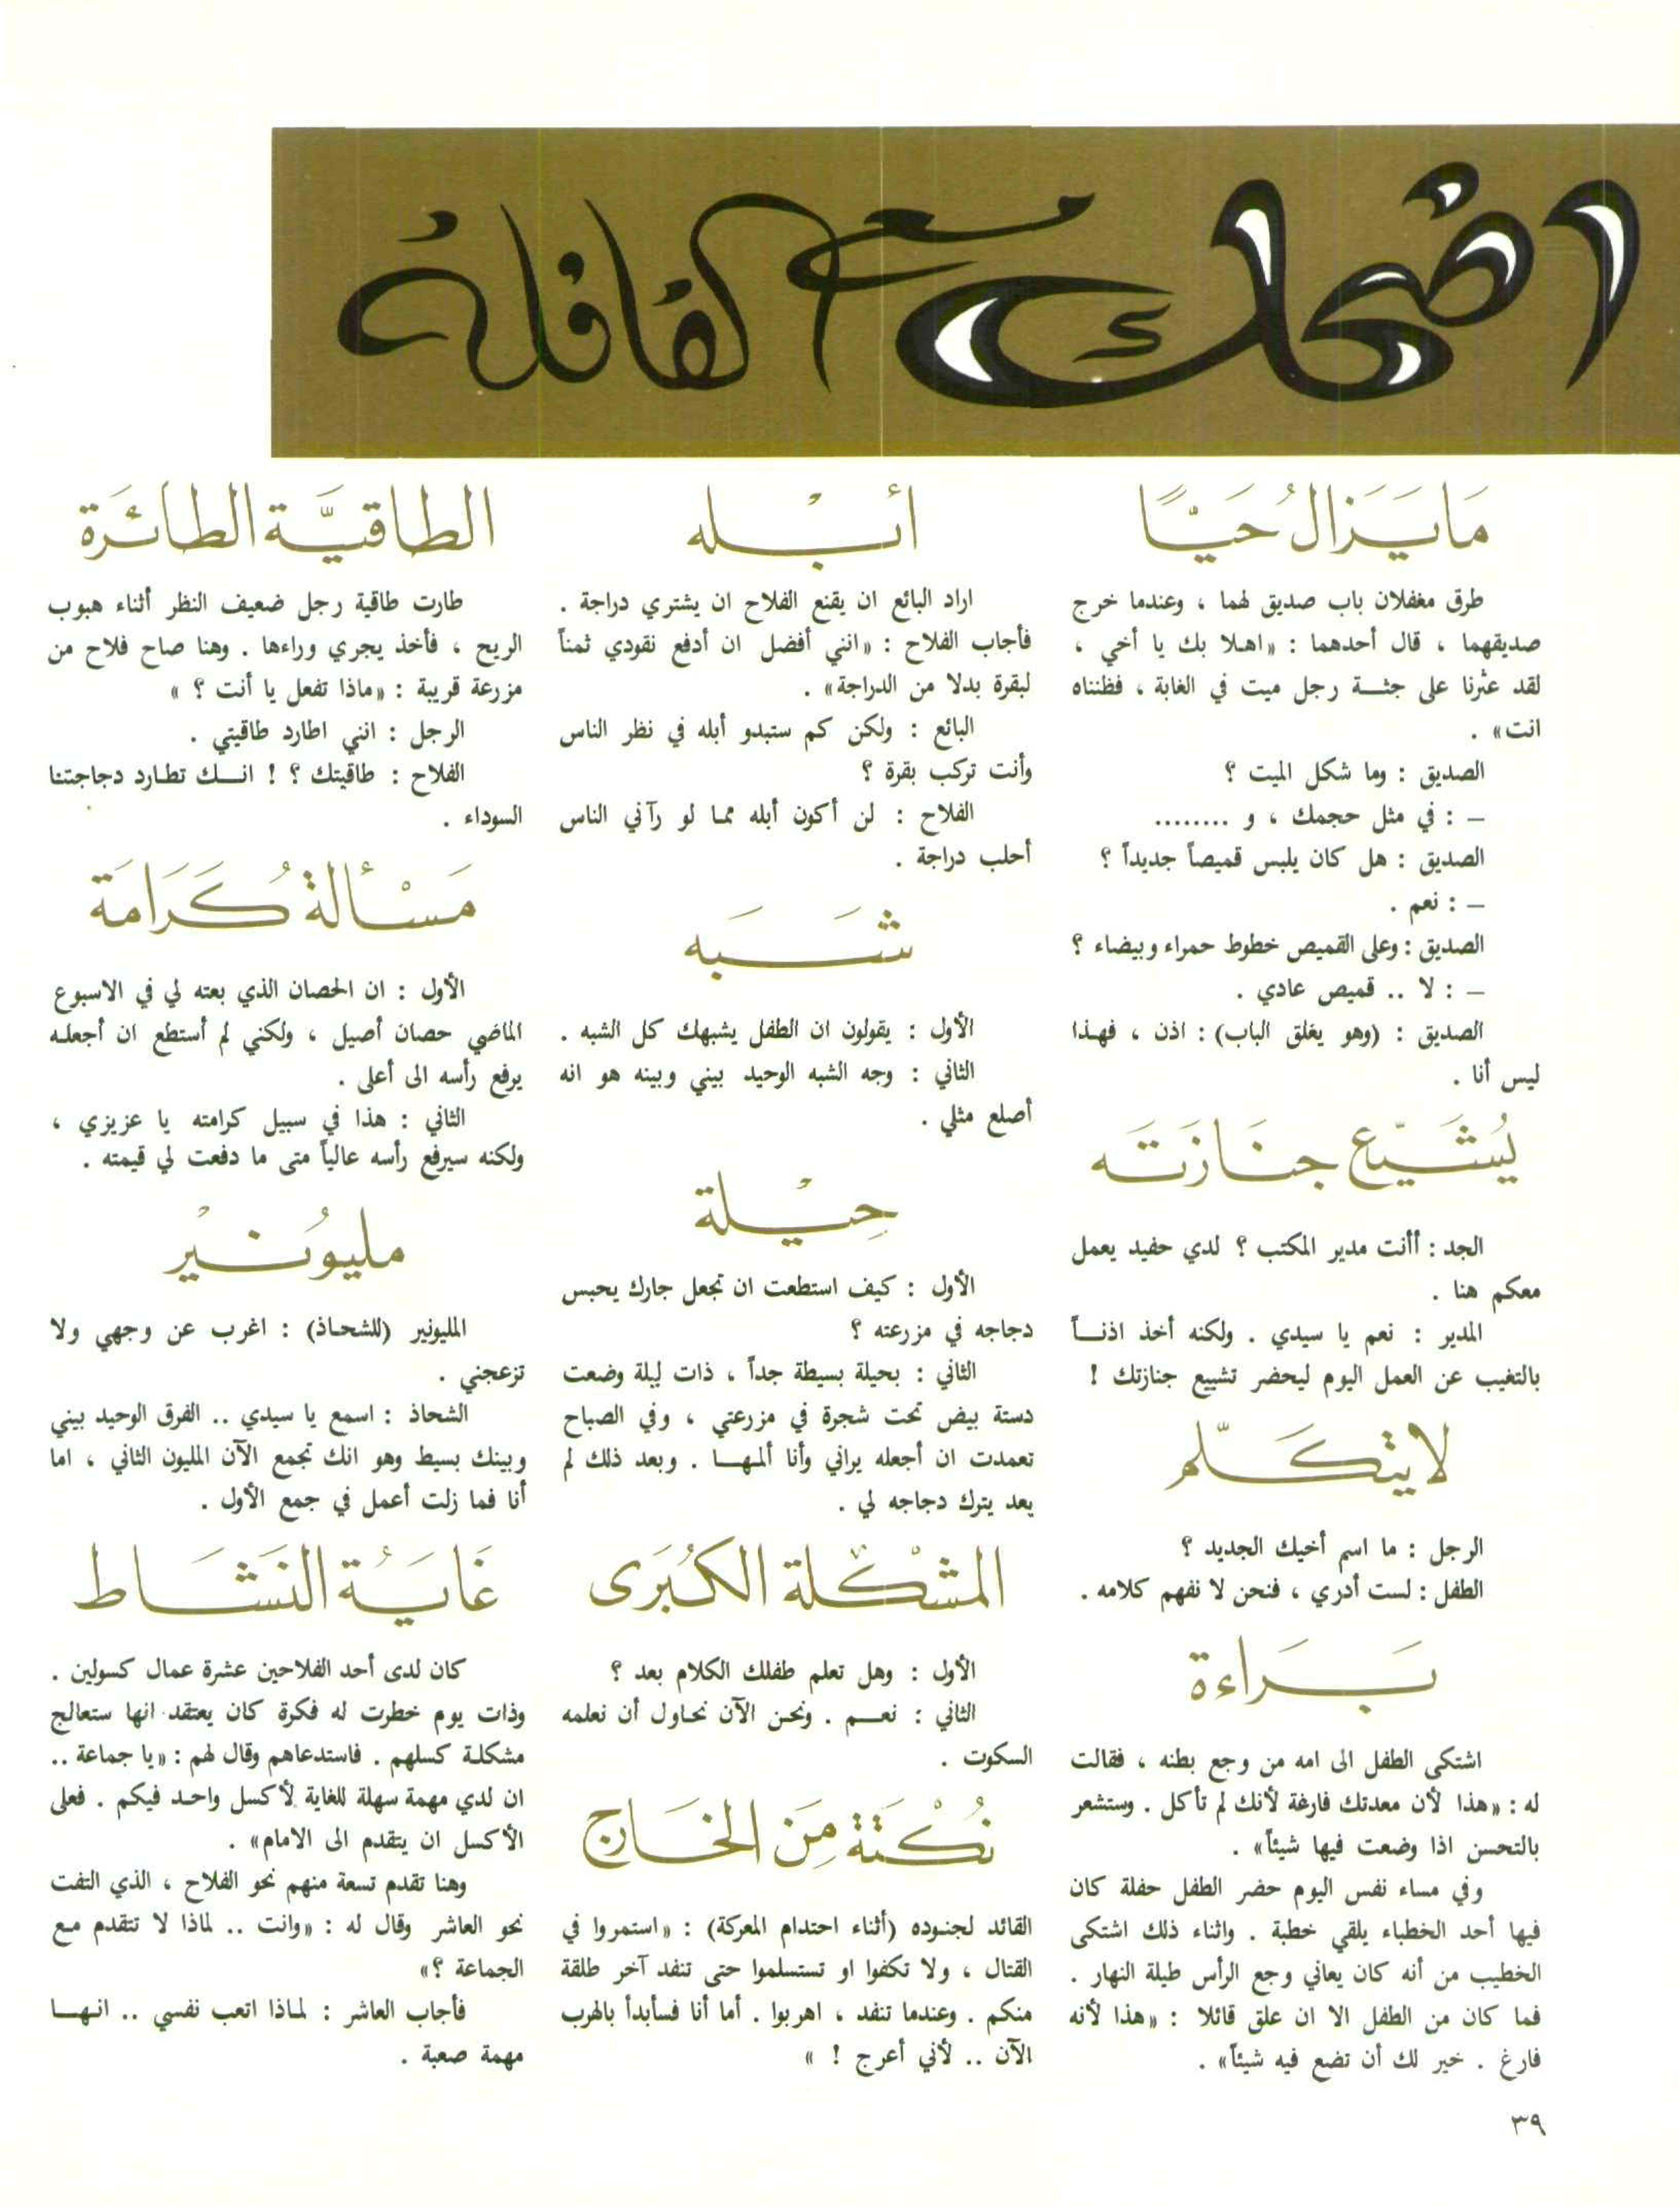 اضحك مع القافلة
مَا يَزَالُ حَيًّا
طرق مغفلان باب صديق لهما ، وعندما خرج
صديقهما ، قال أحدهما : «اهلا بك يا أخي ،
لقد عثرنا على جثـــة رجل ميت في الغابة ، فظنناه
انت» .
الصديق : وما شكل الميت ؟
– : في مثل حجمك ، و ........
الصديق : هل كان يلبس قميصاً جديداً ؟
– : نعم .
الصديق : وعلى القميص خطوط حمراء وبيضاء ؟
– : لا .. قميص عادي .
الصديق : (وهو يغلق الباب) : اذن ، فهذا
ليس أنا .
يُشَيّع جنَازَتَه
الجد : أأنت مدير المكتب ؟ لدي حفيد يعمل
معكم هنا .
المدير : نعم يا سيدي . ولكنه أخذ اذنـــاً
بالتغيب عن العمل اليوم ليحضر تشييع جنازتك !
لا يتكَلّم
الرجل : ما اسم أخيك الجديد ؟
الطفل : لست أدري ، فنحن لا نفهم كلامه .
بَــرَاءة
اشتكى الطفل الى امه من وجع بطنه ، فقالت
له : «هذا لأن معدتك فارغة لأنك لم تأكل . وستشعر
بالتحسن اذا وضعت فيها شيئاً» .
وفي مساء نفس اليوم حضر الطفل حفلة كان
فيها أحد الخطباء يلقي خطبة . واثناء ذلك اشتكى
الخطيب من أنه كان يعاني وجع الرأس طيلة النهار .
فما كان من الطفل الا ان علق قائلا : «هذا لأنه
فارغ . خير لك أن تضع فيه شيئاً» .
أبْــله
اراد البائع ان يقنع الفلاح ان يشتري دراجة .
فأجاب الفلاح : «انني أفضل ان أدفع نقودي ثمناً
لبقرة بدلا من الدراجة» .
البائع : ولكن كم ستبدو أبله في نظر الناس
وأنت تركب بقرة ؟
الفلاح : لن أكون أبله مما لو رآني الناس
أحلب دراجة .
شَــبَه
الأول : يقولون ان الطفل يشبهك كل الشبه .
الثاني : وجه الشبه الوحيد بيني وبينه هو انه
أصلع مثلي .
حِيْــلة
الأول : كيف استطعت ان تجعل جارك يحبس
دجاجه في مزرعته ؟
الثاني : بحيلة بسيطة جداً ، ذات ليلة وضعت
دستة بيض تحت شجرة في مزرعتي ، وفي الصباح
تعمدت ان أجعله يراني وأنا ألمهـــا . وبعد ذلك لم
يعد يترك دجاجه لي .
المشْكلة الكُبرَى
الأول : وهل تعلم طفلك الكلام بعد ؟
الثاني : نعـــم . ونحن الآن نحاول أن نعلمه
السكوت .
نُكْتَة مِنَ الخَارج
القائد لجنوده (أثناء احتدام المعركة) : «استمروا في
القتال ، ولا تكفوا او تستسلموا حتى تنفد آخر طلقة
منكم . وعندما تنفد ، اهربوا . أما أنا فسأبدأ بالهرب
الآن .. لأني أعرج ! »
الطاقيَّة الطائَرة
طارت طاقية رجل ضعيف النظر أثناء هبوب
الريح ، فأخذ يجري وراءها . وهنا صاح فلاح من
مزرعة قريبة : «ماذا تفعل يا أنت ؟ »
الرجل : انني اطارد طاقيتي .
الفلاح : طاقيتك ؟ ! انـــك تطارد دجاجتنا
السوداء .
مَسْألة كَرَامَة
الأول : ان الحصان الذي بعته لي في الاسبوع
الماضي حصان أصيل ، ولكني لم أستطع ان أجعله
يرفع رأسه الى أعلى .
الثاني : هذا في سبيل كرامته يا عزيزي ،
ولكنه سيرفع رأسه عالياً متى ما دفعت لي قيمته .
مليُونــيْر
المليونير (للشحاذ) : اغرب عن وجهي ولا
تزعجني .
الشحاذ : اسمع يا سيدي .. الفرق الوحيد بيني
وبينك بسيط وهو انك تجمع الآن المليون الثاني ، اما
أنا فما زلت أعمل في جمع الأول .
غَايَـة النَشَــاط
كان لدى أحد الفلاحين عشرة عمال كسولين .
وذات يوم خطرت له فكرة كان يعتقد انها ستعالج
مشكلة كسلهم . فاستدعاهم وقال لهم : «يا جماعة ..
ان لدي مهمة سهلة للغاية لأكسل واحد فيكم . فعلى
الأكسل ان يتقدم الى الامام» .
وهنا تقدم تسعة منهم نحو الفلاح ، الذي التفت
نحو العاشر وقال له : «وانت .. لماذا لا تتقدم مع
الجماعة ؟»
فأجاب العاشر : لماذا اتعب نفسي .. انهـــا
مهمة صعبة .
٣٩